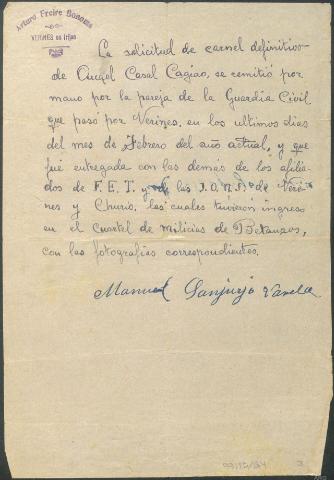 Arturo Freire Bonome
VERINES de Irijoa
La solicitud de carnel definitivo
de Angel Casal Cagiao, se remitió por
mano por la pareja de la Guardia Civil
que pasó por Verines, en los ultimos dias
del mes de Febrero del año actual, y que
fué entregada con las demás de los afilia-
dos de F.E.T. y de las J.O.N.S. de Veri-
nes y Churio, las cuales tuvieron ingreso
en el Cuartel de Milicias de Betanzos,
con las fotografias correspondientes.
Manuel Sanjurjo Varela